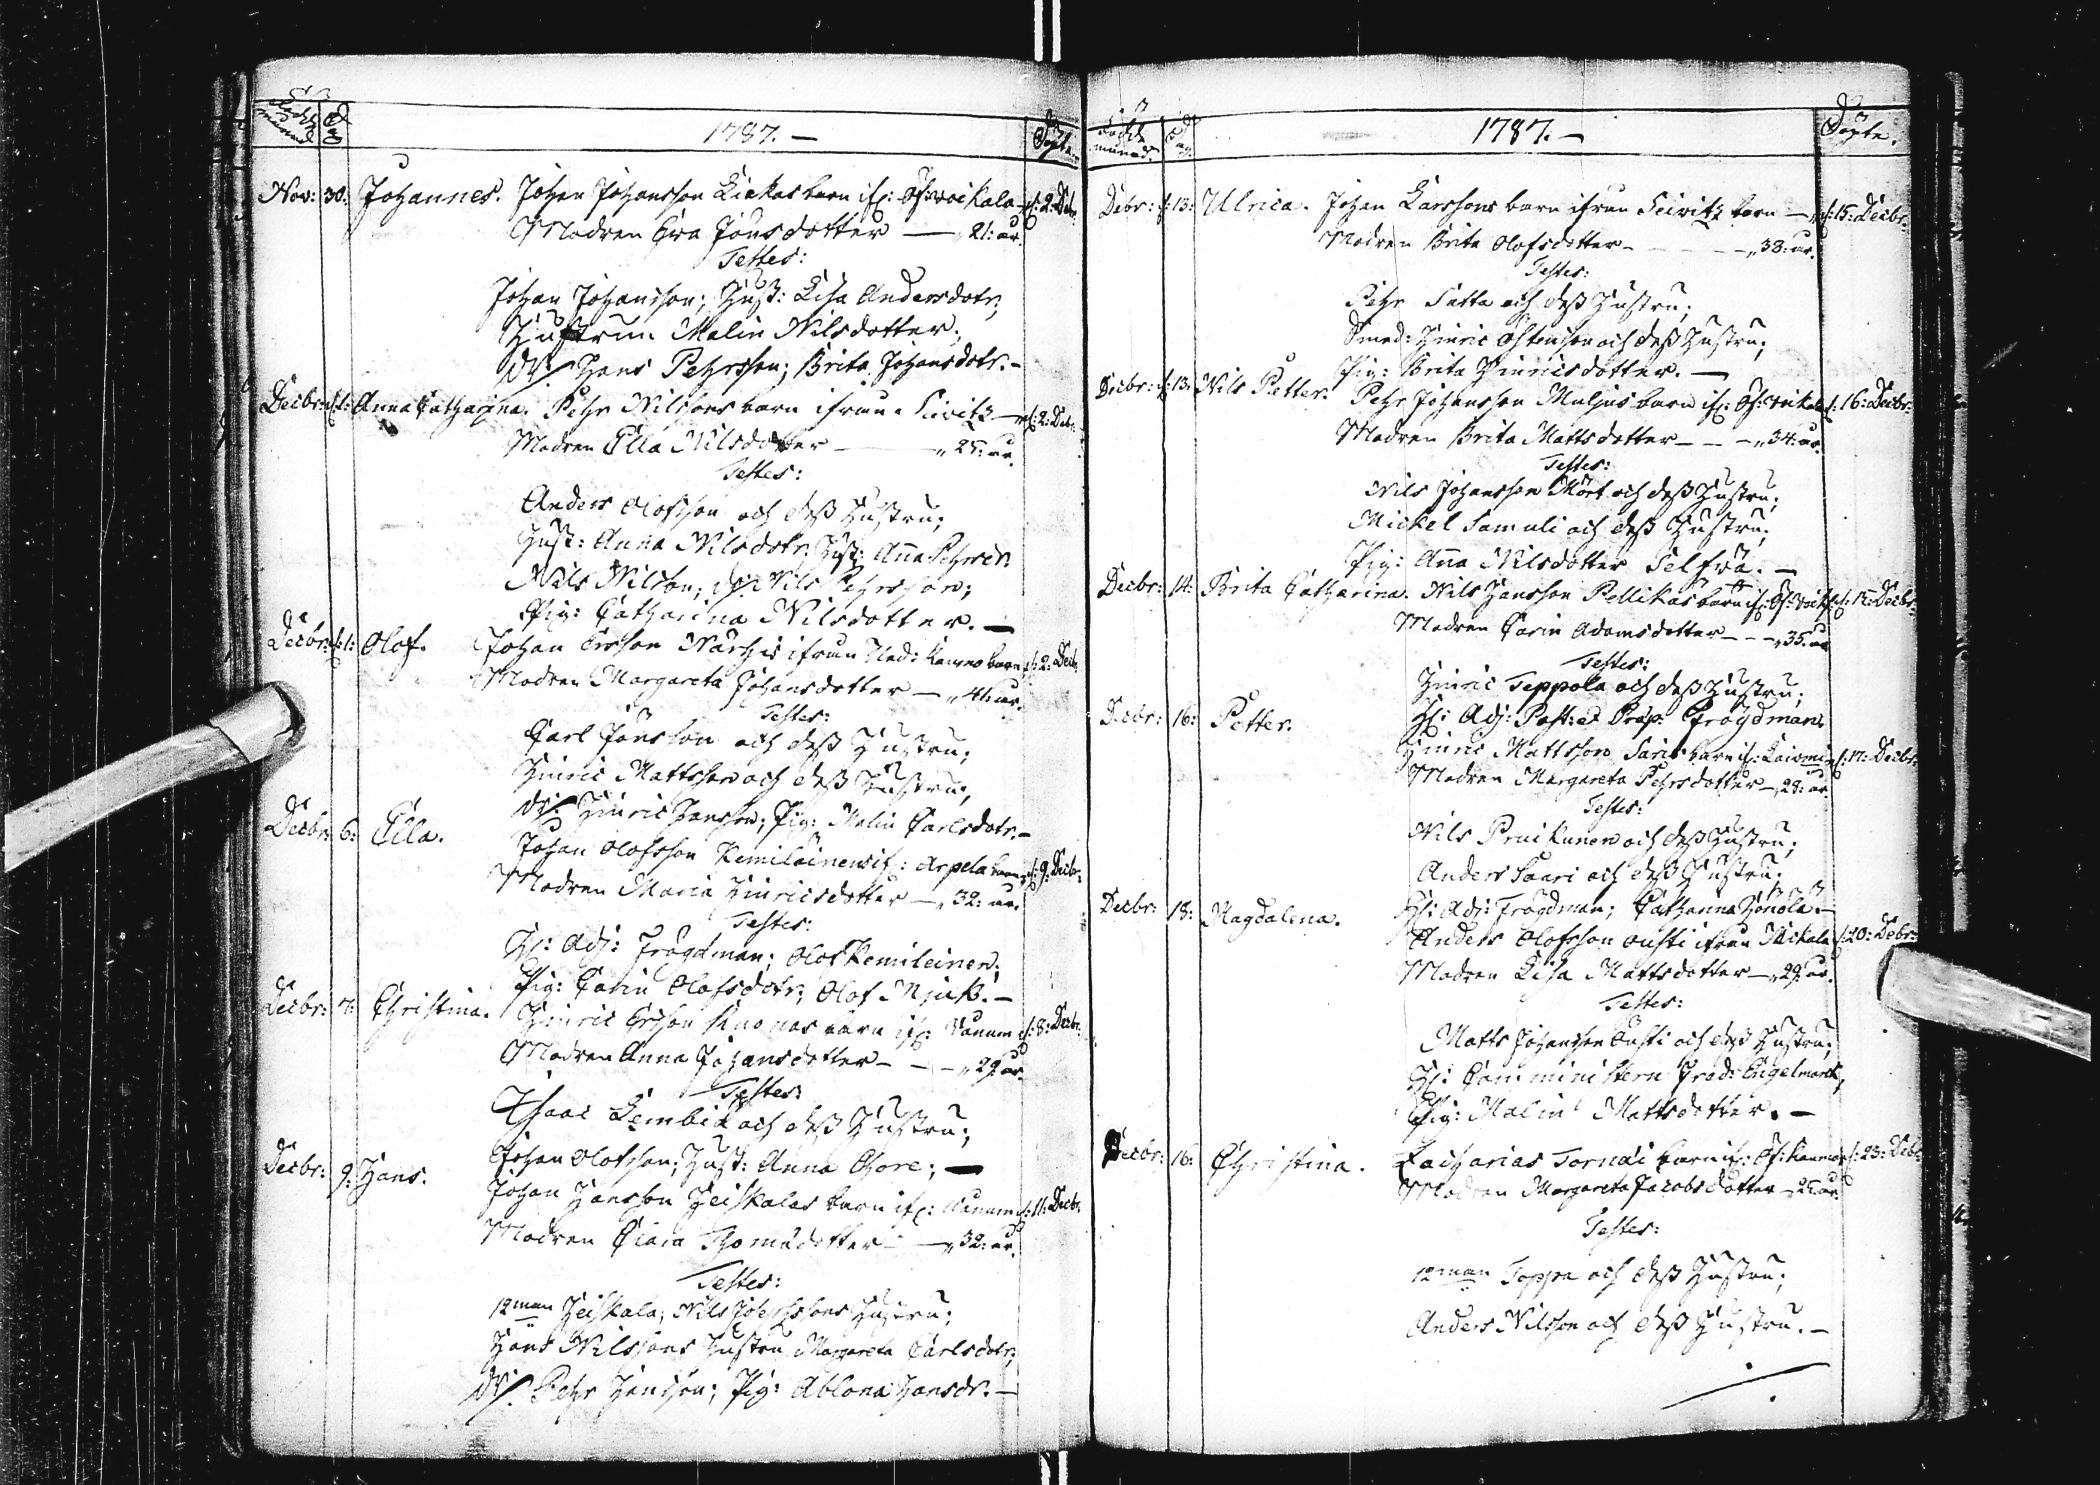 1787.–
Döpte.
Nov: 30: Johannes. Johan Johansson Liakas barn if: Of:woikala d: 2: Decbr
Modren Eva Jönsdotter — „21: år.
Testes:
Johan Johansson; Hust: Lisa Andersdotr;
Hustrun Malin Nilsdotter;
Dr: Hans Pehrsson; Brita Johansdotr.–
Decbr: d: 1: Anna Catharina. Pehr Nilssons barn ifrån Seivitz — d: 2: Decbr:
Modren Ella Nilsdotter — „25: år.
Testes:
Anders Olofsson och dess Hustru;
Hust: Anna Nilsdotr; Hust: Anna Pehrsdr
Nils Nilsson; Dr: Nils Pehrsson;
Pig: Catharina Nilsdotter. —
Decbr: d: 1: Olof. Johan Ersson Närhis ifrån Ned: Kamno barn d: 2: Decbr
Modren Margareta Johansdotter — „41: år.
Testes:
Carl Jönsson och dess Hustru;
Hinric Mattsson och dess Hustru;
Dr: Hinric Hansson; Pig: Malin Carlsdotr–
Decbr: 6: Ella. Johan Olofsson Kemiläinens if: Arpela barn d: 9: Decbr:
Modren Maria Hinricsdotter — „32: år.
Testes:
H: Adj: Frögdman; Olof Kemileinen;
Pig: Carin Olofsdotr; Olof Njuk.–
Decbr: 7: Christina. Hinric Ersson Kuonas barn if: Vånum d: 8: Decbr:
Modren Anna Johansdotter – – „29: år.
Testes:
Isaac Lembik och dess Hustru;
Johan Olofsson; Hust: Anna Thore; —
Decbr: 9: Hans. Johan Hansson Heiskalas barn if: Vånum d: 11: Decbr:
Modren Clara Thomædotter — „32: år.
Testes:
12man Heiskala; Nils Johanssons Hustru;
Hans Nilssons Hustru Margareta Carlsdotr;
Dr: Pehr Hansson; Pig: Ablona Hansdr.–
1787.–
Döpte.
Decbr: d: 13: Ulrica. Johan Larssons barn ifrån Seivitz barn — d: 15: Decbr:
Modren Brita Olofsdotter – – – „38: år.
Testes:
Pehr Patta och dess Hustru;
Smed: Hinric Östensson och dess Hustru;
Pig: Brita Hinricsdotter. —
Decbr: d: 13: Nils Petter. Pehr Johansson Muljus barn if: Of:voikala d: 16: Decbr:
Modren Brita Mattsdotter – – „34: år.
Testes:
Nils Johansson Mört och dess Hustru;
Mickel Samuli och dess Hustru;
Pig: Anna Nilsdotter Selfvä. —
Decbr: 14: Brita Catharina. Nils Hansson Pellikas barn if: Of:voik d: 15: Decbr:
Modren Carin Adamsdotter – – „35: år
Testes:
Hinric Teppola och dess Hustru;
H: Adj: Past: et Præp: Frögdman
Decbr: 16: Petter. Hinric Mattsson Saris barn if: Laivanie d: 17: Decbr:
Modren Margareta Pehrsdotter — „28: år.
Testes:
Nils Pruikunen och dess Hustru;
Anders Saari och dess Hustru;
H: Adj: Frögdman; Catharina Yönola.–
Decbr: 18: Magdalena. Anders Olofsson Ousti ifrån Mickala d: 20: Decbr:
Modren Lisa Mattsdotter — „29: år.
Testes:
Matts Johansson Ousti och dess Hustru;
H: Comministern Fred: Engelmarck,
Pig: Malin Mattsdotter. —
Decbr: 16: Christina. Zacharias Tornäi barn if: Of:kamno d: 23: Decbr
Modren Margareta Jacobsdotter — „25: år.
Testes:
12man Toppa och dess Hustru;
Anders Nilsson och dess Hustru. –